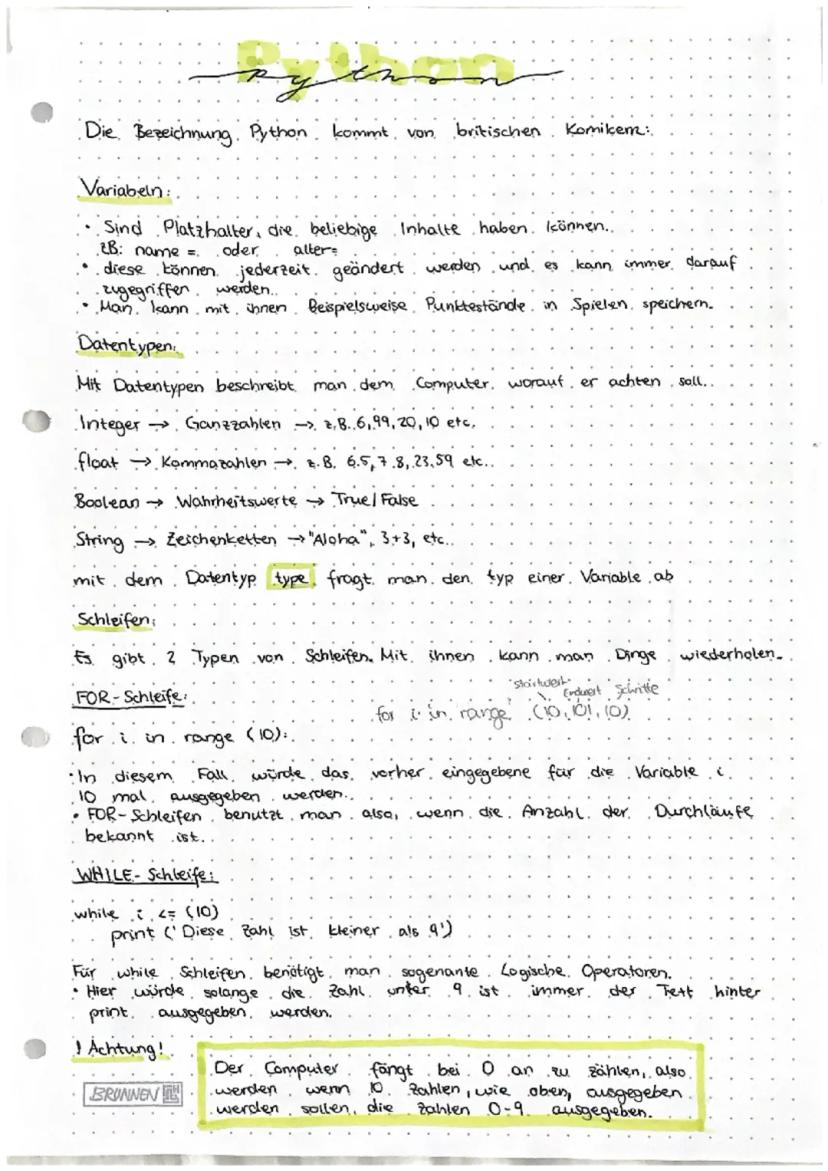 Python
python
Die Bezeichnung Python kommt von britischen Komikern.
Variabeln:
• Sind Platzhalter, die beliebige Inhalte haben können.
zB: name = oder alter=
• diese können jederzeit geändert werden und es kann immer darauf
zugegriffen werden.
• Man kann mit ihnen Beispielsweise Punktestände in Spielen speichern.
Datentypen:
Mit Datentypen beschreibt man dem Computer worauf er achten soll.
Integer → Ganzzahlen → z.B. 6,99,20,10 etc.
float → Kommazahlen → z.B. 6.5,7.8,23,59 etc.
Boolean → Wahrheitswerte → True/False
String → Zeichenketten → "Aloha", 3+3, etc.
mit dem Datentyp type fragt man den typ einer Variable ab
Schleifen:
Es gibt 2 Typen von Schleifen. Mit ihnen kann man Dinge wiederholen.
Startwert Endwert Schritte
FOR-Schleife:
for i in range (10,101,10)
for i in range (10):
• In diesem Fall würde das vorher eingegebene für die Variable i
10 mal ausgegeben werden.
• FOR-Schleifen benutzt man also, wenn die Anzahl der Durchläufe
bekannt ist.
WHILE-Schleife:
while i <= (10)
print ('Diese Zahl ist kleiner als 9')
Für while Schleifen benötigt man sogenante Logische Operatoren.
• Hier würde solange die Zahl unter 9 ist immer der Text hinter
print ausgegeben werden.
! Achtung!
Der Computer fängt bei 0 an zu zählen, also
werden wenn 10 Zahlen, wie oben, ausgegeben
werden sollen, die Zahlen 0-9 ausgegeben.
BRUNNEN